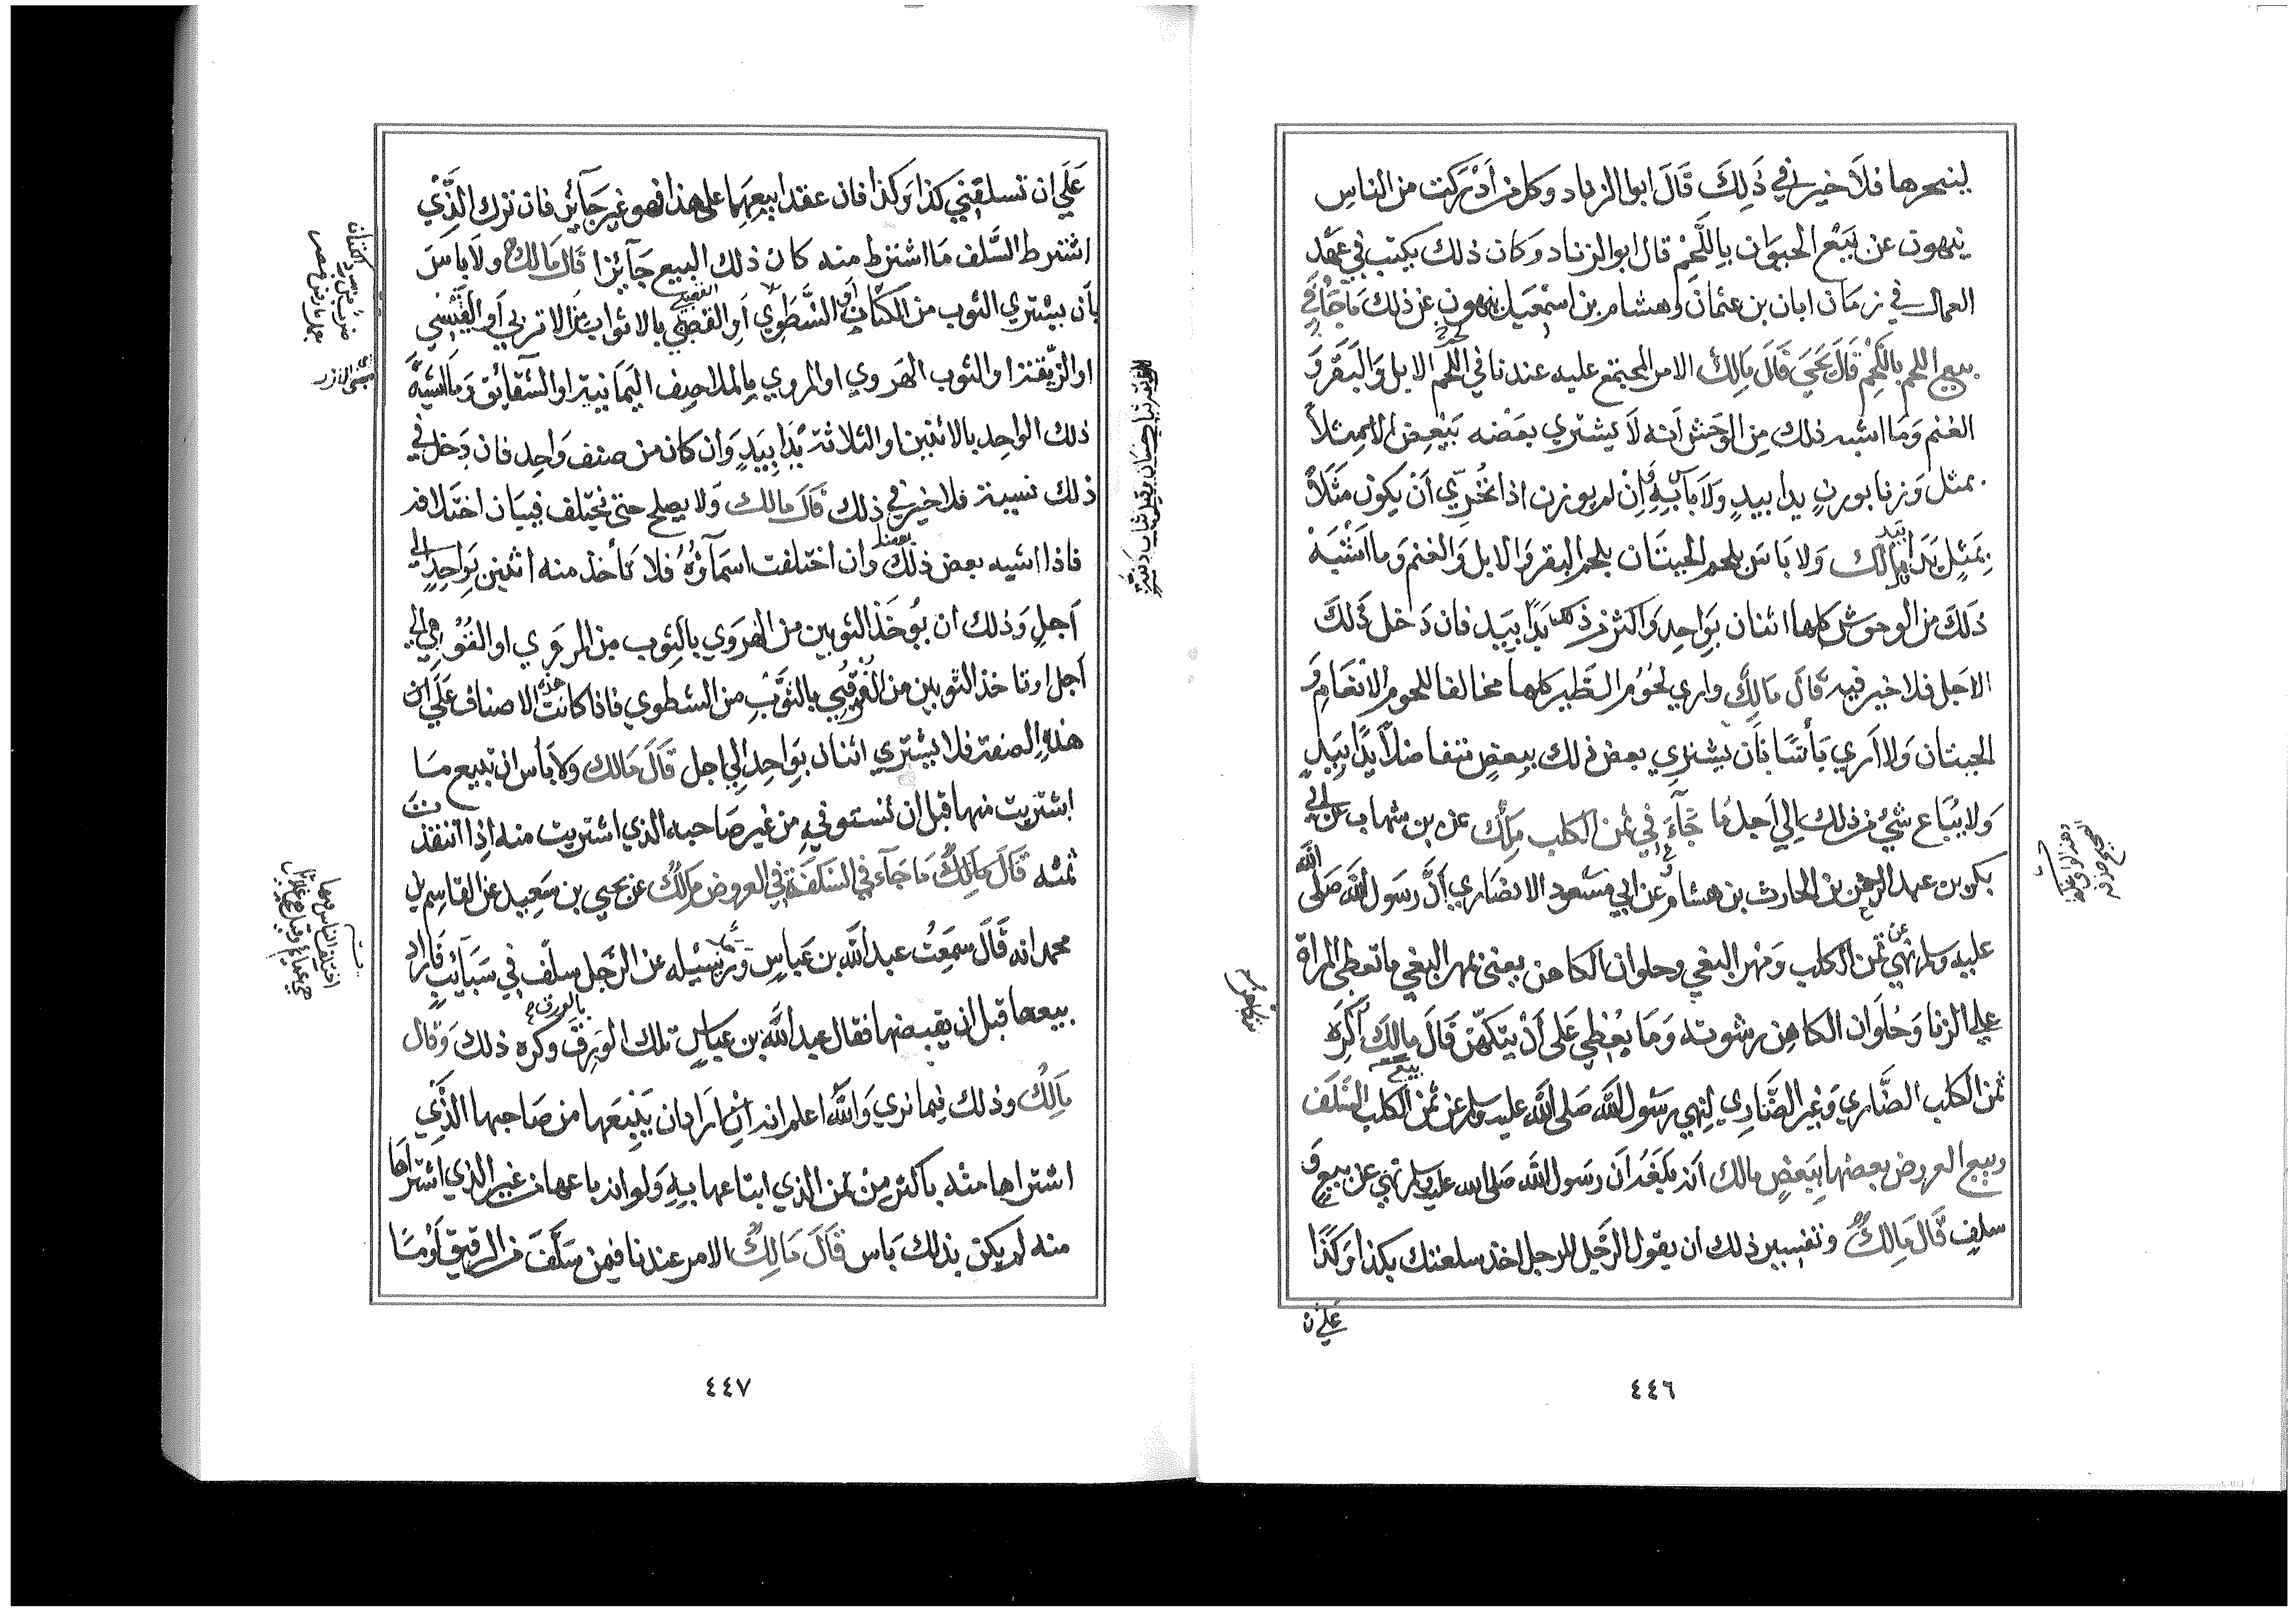 لينحرها فلا خير في ذلك قال ابو الزناد وكل من أدركت من الناس
ينهون عن بيع الحيوان باللحم قال ابو الزناد وكان ذلك يكتب في عهد
العمال في زمان ابان بن عثمان وهشام بن اسمعيل ينهون عن ذلك ما جاء في
بيع اللحم باللحم قال يحيى قال مالك الامر المجتمع عليه عندنا في اللحم الابل والبقر و
الغنم وما اشبه ذلك من الوحش أنه لا يشترى بعضه ببعض الا مثلاً
بمثل وزنا بوزن يدا بيد ولا بأس به وان لم يوزن اذا تحري أن يكون مثلاً
بمثل يدا بيد مالك ولا باس بلحم الحيتان بلحم البقر والابل والغنم وما اشبه
ذلك من الوحوش كلها اثنان بواحد واكثر من ذلك يدا بيد فان دخل ذلك
الاجل فلا خير فيه قال مالك واري لحوم الطير كلها مخالفا للحوم الانعام و
الحيتان ولا اري بأسا بأن يشترى بعض ذلك ببعض متفاضلاً يدا بيد
ولا يباع شئ من ذلك الي اجل ما جاء في ثمن الكلب مالك عن بن شهاب عن ابي
بكر بن عبد الرحمن بن الحارث بن هشام عن ابي مسعود الانصاري أن رسول الله صلى الله
عليه وسلم نهي عن ثمن الكلب ومهر البغي وحلوان الكاهن يعنى بمهر البغي ما تعطى المراة
علي الزنا وحلوان الكاهن رشوته وما يعطي على أن يتكهن قال مالك أكره
ثمن الكلب الضاري وغير الضاري لنهي رسول الله صلى الله عليه وسلم عن ثمن الكلب بيع السلف
وبيع العروض بعضها ببعض مالك أنه بلغه أن رسول الله صلى الله عليه وسلم نهي عن بيع و
سلف قال مالك وتفسير ذلك أن يقول الرجل للرجل اخذ سلعتك بكذا وكذا
علي ان
٤٤٦
علي ان تسلفني كذا وكذا فان عقدا بيعهما على هذا فهو غير جائز فان ترك الذي
اشترط السلف ما اشترط منه كان ذلك البيع جائزا قال مالك ولا باس
بأن يشتري الثوب من الكتان أو الشطوي أو القصبي بالاثواب من الاتريبي أو القسي
او الزيقة او الثوب الهروي او المروي بالملاحف اليمانية او الشقائق وما اشبه
ذلك الواحد بالاثنين او الثلاثة يدا بيد وان كان من صنف واحد فان دخل في
ذلك نسيئة فلا خير في ذلك قال مالك ولا يصلح حتى يختلف فيبان اختلافه
فاذا اشبه بعض ذلك بعضا وان اختلفت اسماؤه فلا تأخذ منه اثنين بواحد الي
أجل وذلك ان يؤخذ الثوبين من الهروي بالثوب من المروي او القوهي الي
أجل او تاخذ الثوبين من الفرقبي بالثوب من الشطوي فاذا كانت هذه الاصناف على ان
هذه الصفة فلا يشتري اثنان بواحد الي اجل قال مالك ولا بأس ان تبيع ما
اشتريت منها قبل ان تستوفيه من غير صاحبه الذي اشتريت منه اذا انتقدت
ثمنه قال مالك ما جاء في السلفة في العروض مالك عن يحيي بن سعيد عن القاسم بن
محمد انه قال سمعت عبد الله بن عباس ورجل يسئله عن الرجل سلف في سبائب فاراد
بيعها قبل ان يقبضها فقال عبد الله بن عباس تلك الورق بالورق وكره ذلك وقال
مالك وذلك فيما نري والله اعلم انه انما اراد ان يبيعها من صاحبها الذي
اشتراها منه باكثر من ثمن الذي ابتاعها به ولو انه باعها من غير الذي اشتراها
منه لم يكن بذلك باس قال مالك الامر عندنا فيمن سلف في الرقيق أو ما
٤٤٧